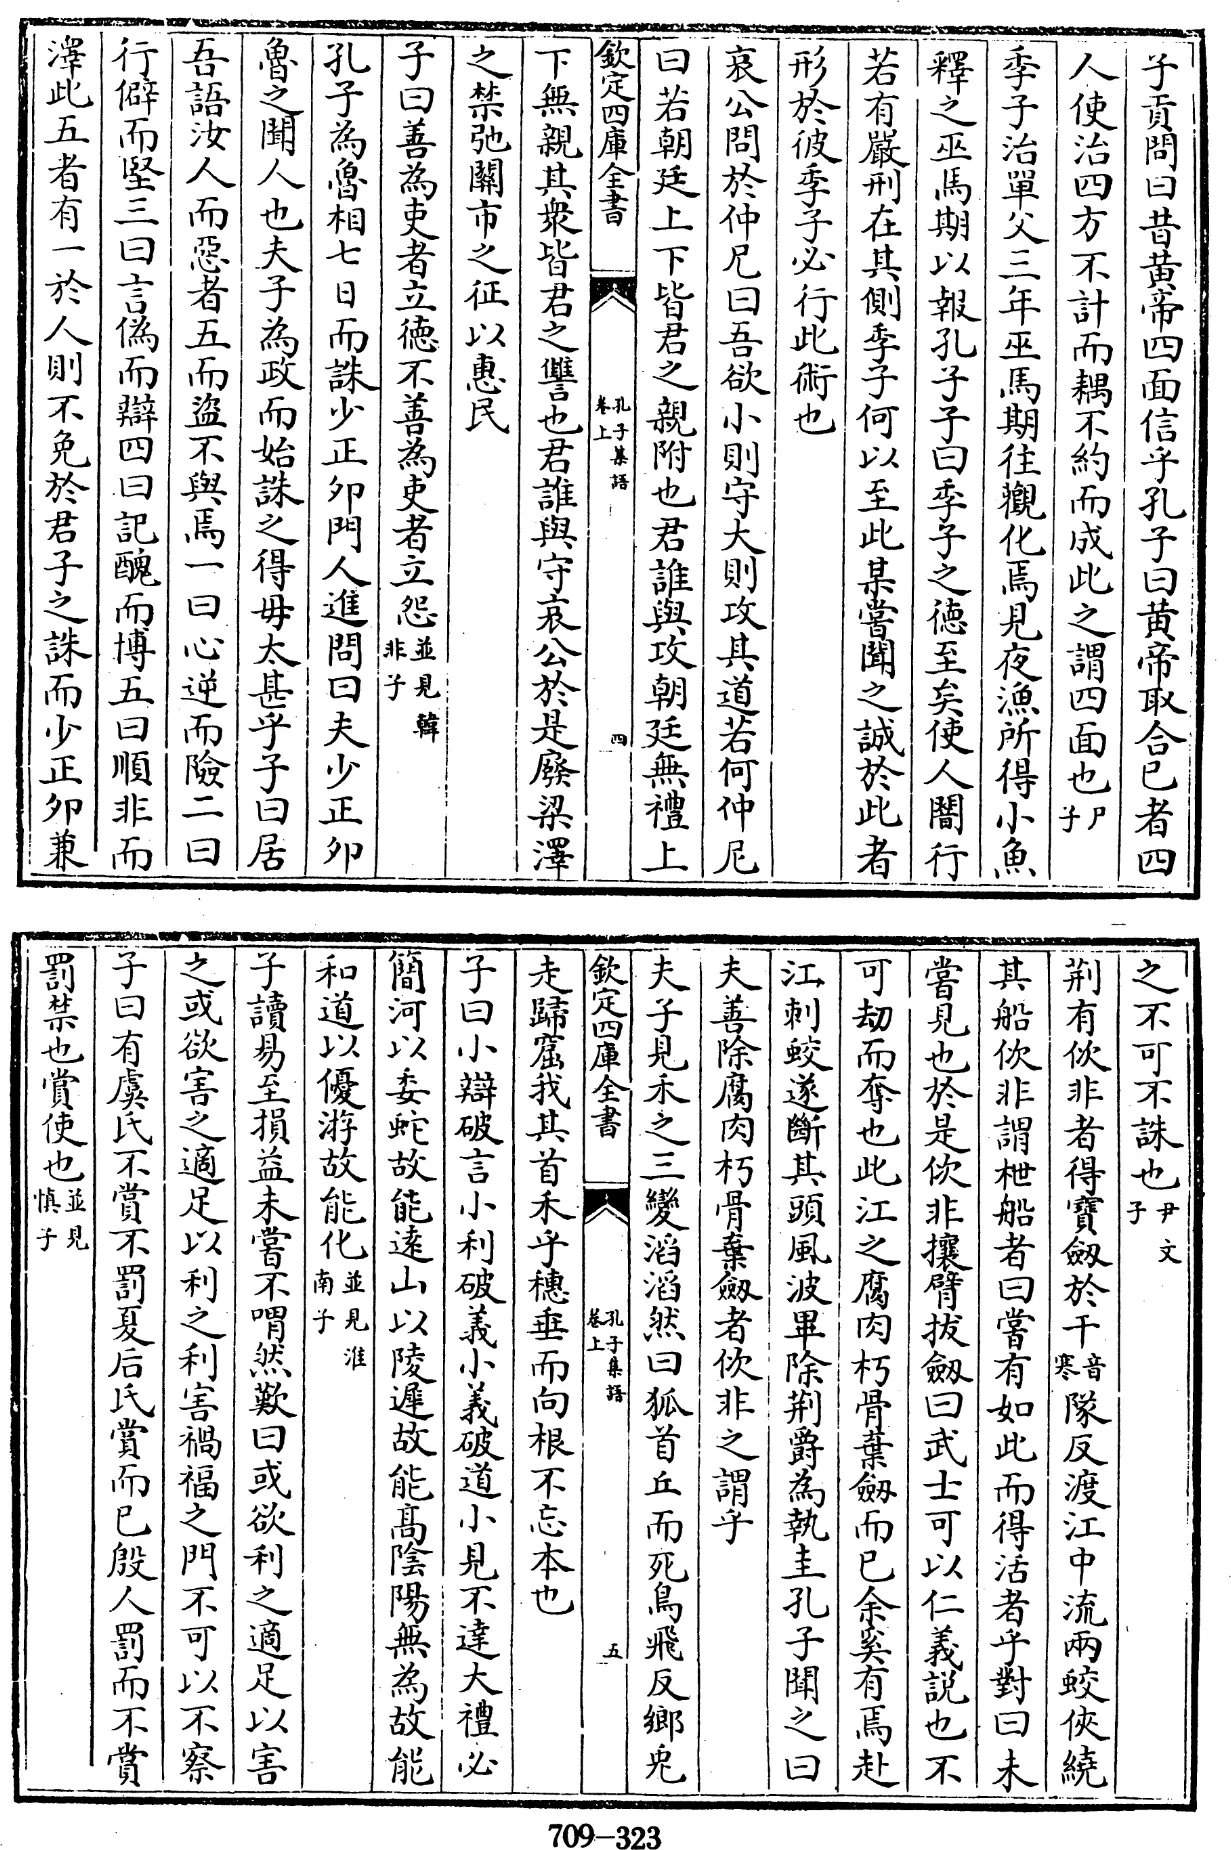 子貢問曰昔黄帝四面信乎孔子曰黄帝取合已者四
人使治四方不計而耦不約而成此之謂四面也尸子
季子治單父三年巫馬期往觀化焉見夜漁所得小魚
釋之巫馬期以報孔子子曰季子之德至矣使人闇行
若有嚴刑在其側季子何以至此某嘗聞之誠於此者
形於彼季子必行此術也
哀公問於仲尼曰吾欲小則守大則攻其道若何仲尼
曰若朝廷上下皆君之親附也君誰與攻朝廷無禮上
欽定四庫全書 孔子集語卷上 四
下無親其衆皆君之讐也君誰與守哀公於是廢梁澤
之禁弛關市之征以惠民
子曰善為吏者立德不善為吏者立怨並見韓非子
孔子為魯相七日而誅少正夘門人進問曰夫少正夘
魯之聞人也夫子為政而始誅之得毋太甚乎子曰居
吾語汝人而惡者五而盗不與焉一曰心逆而險二曰
行僻而堅三曰言偽而辯四曰記醜而博五曰順非而
澤此五者有一於人則不免於君子之誅而少正夘兼
之不可不誅也尹文子
荆有佽非者得寶劔於干音寒隊反渡江中流兩蛟俠繞
其船佽非謂枻船者曰嘗有如此而得活者乎對曰未
嘗見也於是佽非攘臂拔劔曰武士可以仁義説也不
可劫而奪也此江之腐肉朽骨棄劔而已余奚有焉赴
江刺蛟遂斷其頭風波畢除荆爵為執圭孔子聞之曰
夫善除腐肉朽骨棄劔者佽非之謂乎
夫子見禾之三變滔滔然曰狐首丘而死鳥飛反鄉兎
欽定四庫全書 孔子集語卷上 五
走歸窟我其首禾乎穗垂而向根不忘本也
子曰小辯破言小利破義小義破道小見不達大禮必
簡河以委蛇故能逺山以陵遲故能髙陰陽無為故能
和道以優游故能化並見淮南子
子讀易至損益未嘗不喟然歎曰或欲利之適足以害
之或欲害之適足以利之利害禍福之門不可以不察
子曰有虞氏不賞不罰夏后氏賞而已殷人罰而不賞
罰禁也賞使也並見慎子
709-323